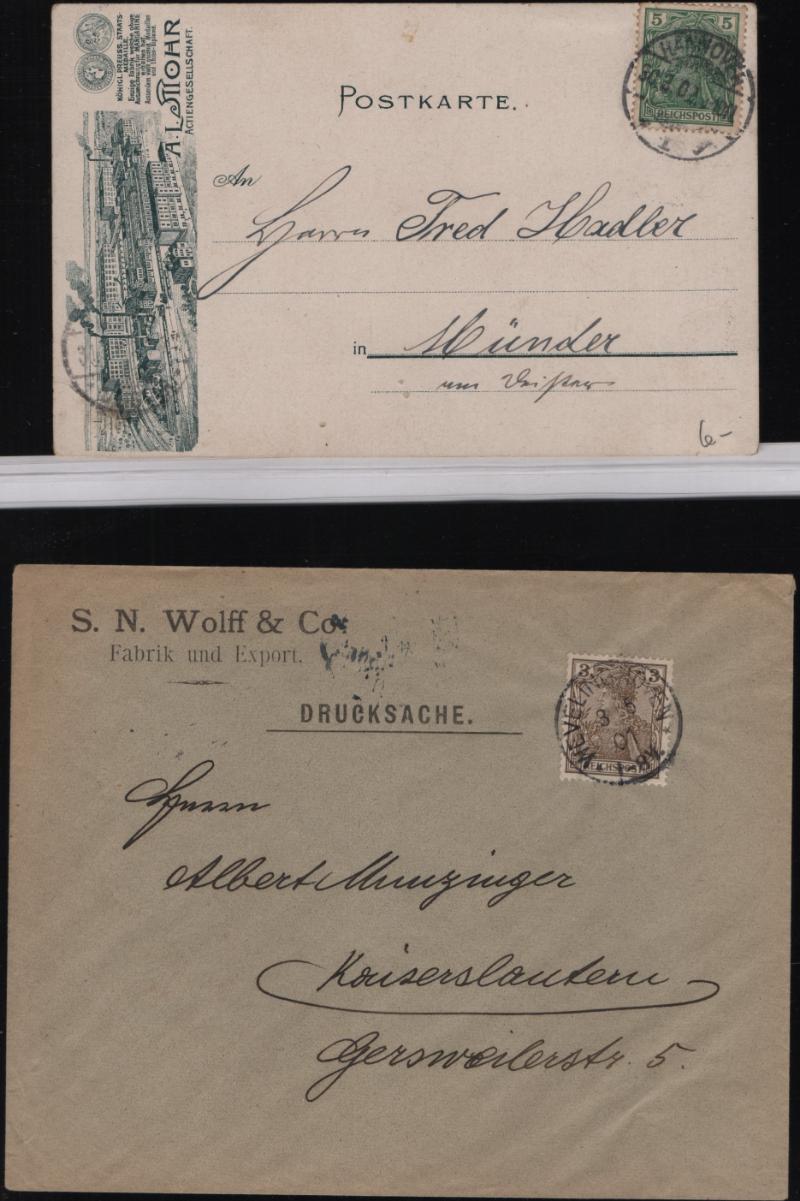 KÖNIGL. PREUSS. STAATS-
MEDAILLE.
A. L. MOHR
ACTIENGESELLSCHAFT.
POSTKARTE.
5 5
REICHSPOST
HANNOVER
An
Herrn Fred Hadler
in Münder
am Deister
6-
S. N. Wolff & Co.
Fabrik und Export.
DRUCKSACHE.
3 3
REICHSPOST
Herrn
Albert Munzinger
Kaiserslautern
Gersweilerstr. 5.